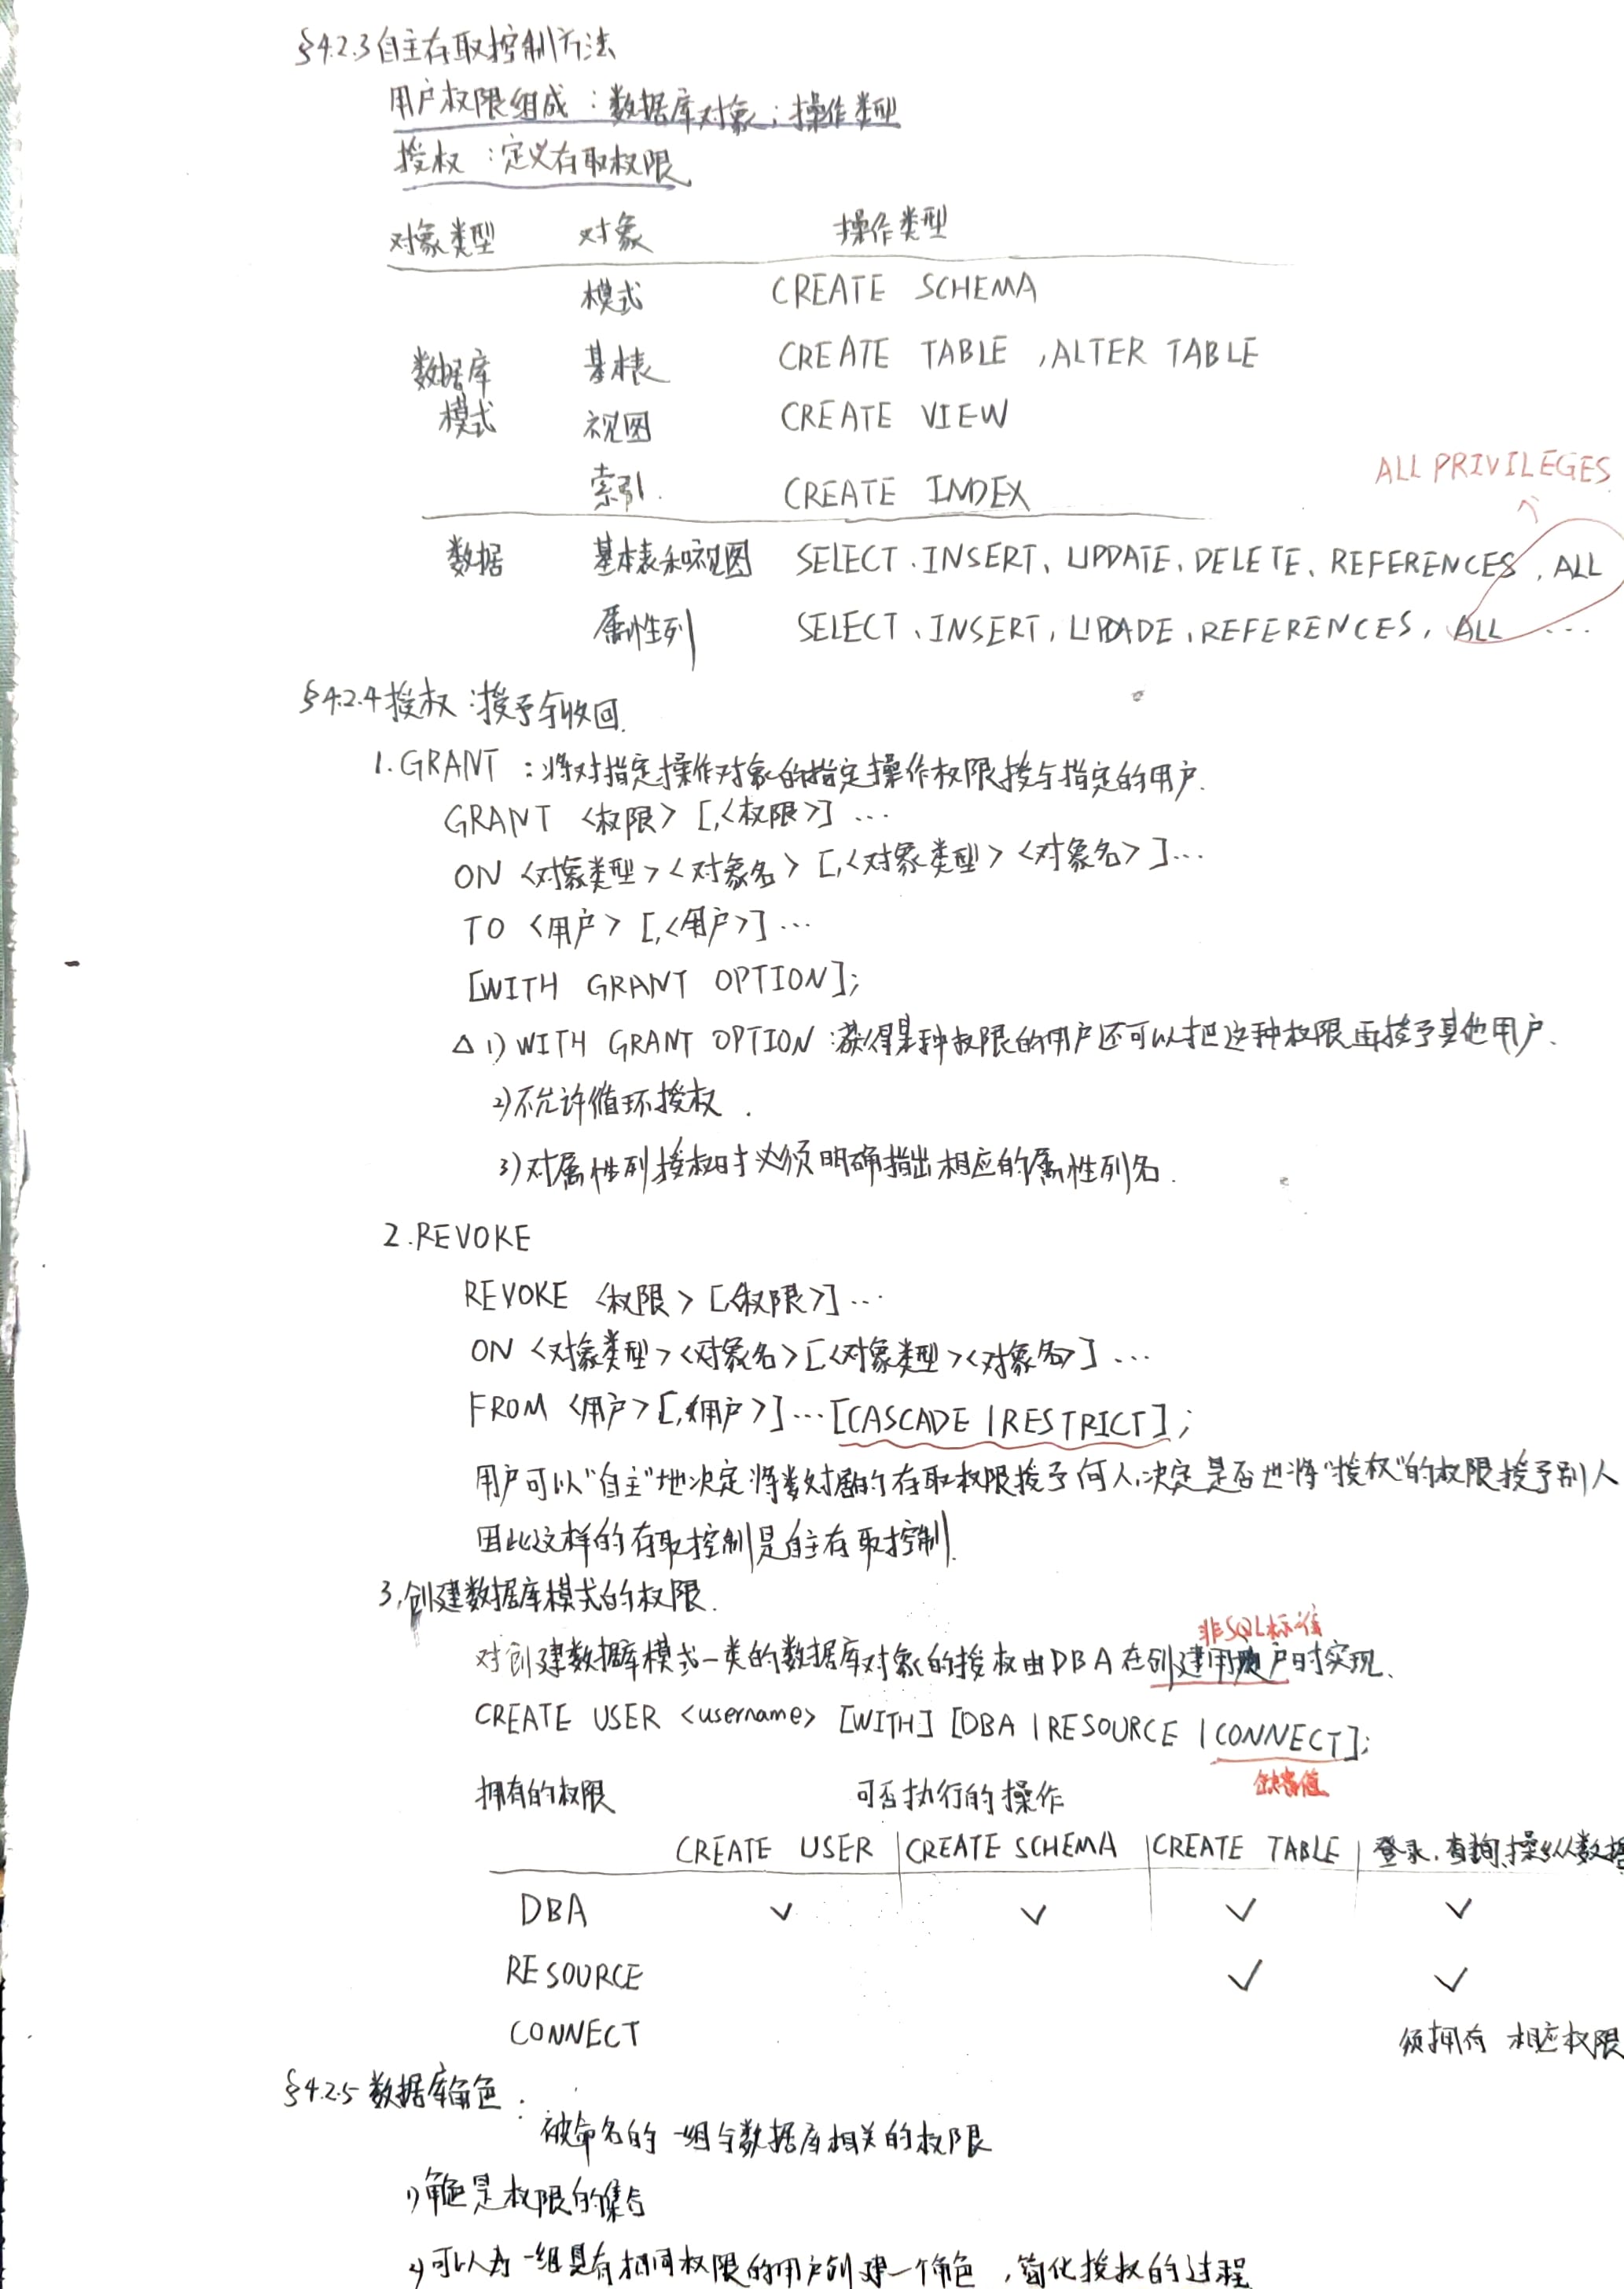 §4.2.3 自主存取控制方法
用户权限组成：数据库对象；操作类型
授权：定义存取权限
对象类型 对象 操作类型
模式 CREATE SCHEMA
数据库 基本表 CREATE TABLE ,ALTER TABLE
模式 视图 CREATE VIEW
索引. CREATE INDEX
ALL PRIVILEGES
数据 基本表和视图 SELECT、INSERT、UPDATE、DELETE、REFERENCES , ALL
属性列 SELECT、INSERT, UPDADE, REFERENCES, ALL ...
§4.2.4 授权：授予与收回.
1. GRANT：将对指定操作对象的指定操作权限授与指定的用户.
GRANT <权限> [,<权限>] ...
ON <对象类型> <对象名> [,<对象类型> <对象名>]...
TO <用户> [,<用户>] ...
[WITH GRANT OPTION];
△ 1) WITH GRANT OPTION：获得某种权限的用户还可以把这种权限再授予其他用户.
2)不允许循环授权.
3)对属性列授权时必须明确指出相应的属性列名.
2.REVOKE
REVOKE <权限> [,<权限>] ...
ON <对象类型> <对象名> [<对象类型> <对象名>] ...
FROM <用户> [,<用户>] ... [CASCADE | RESTRICT];
用户可以"自主"地决定将数据的存取权限授予何人,决定是否也将"授权"的权限授予别人
因此这样的存取控制是自主存取控制.
3,创建数据库模式的权限.
非SQL标准
对创建数据库模式一类的数据库对象的授权由DBA在创建用户时实现.
CREATE USER <username> [WITH] [DBA | RESOURCE | CONNECT];
缺省值
拥有的权限 可否执行的操作
CREATE USER CREATE SCHEMA CREATE TABLE 登录、查询、操纵数据
DBA ✓ ✓ ✓ ✓
RESOURCE ✓ ✓
CONNECT 须拥有相应权限
§4.2.5 数据库角色：
被命名的一组与数据库相关的权限
1)角色是权限的集合
2)可以为一组具有相同权限的用户创建一个角色,简化授权的过程